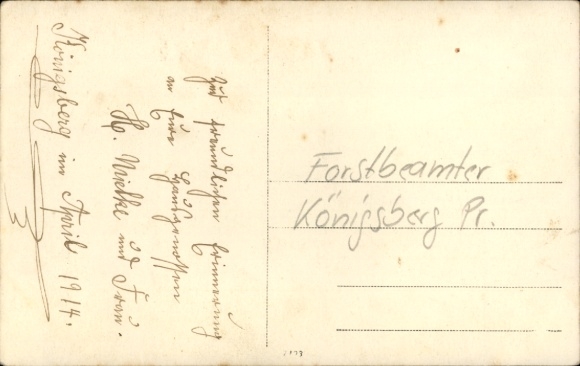 Zur freundlichen Erinnerung
an Eure Hausgenossen
H. Mielke und Frau.
Königsberg im April 1914.
Forstbeamter
Königsberg Pr.